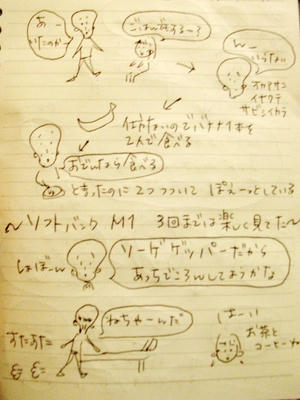 あー
かたのかー
ごはんですよー?
んー
いらない
オカアサン
イナクテ
サビシイカラ
仕方ないのでバナナ1本を
2人で食べる
おでんなら食べる
と言ったのに2つつついて ぽえーっとしている
〜ソフトバンク M1 3回までは楽しく見てた〜
しょぼーん
ソーダゲッパーだから
あっちでころんしておうかな
ねちゃーんだ
すたすた
はーい
お茶と
コーヒーね